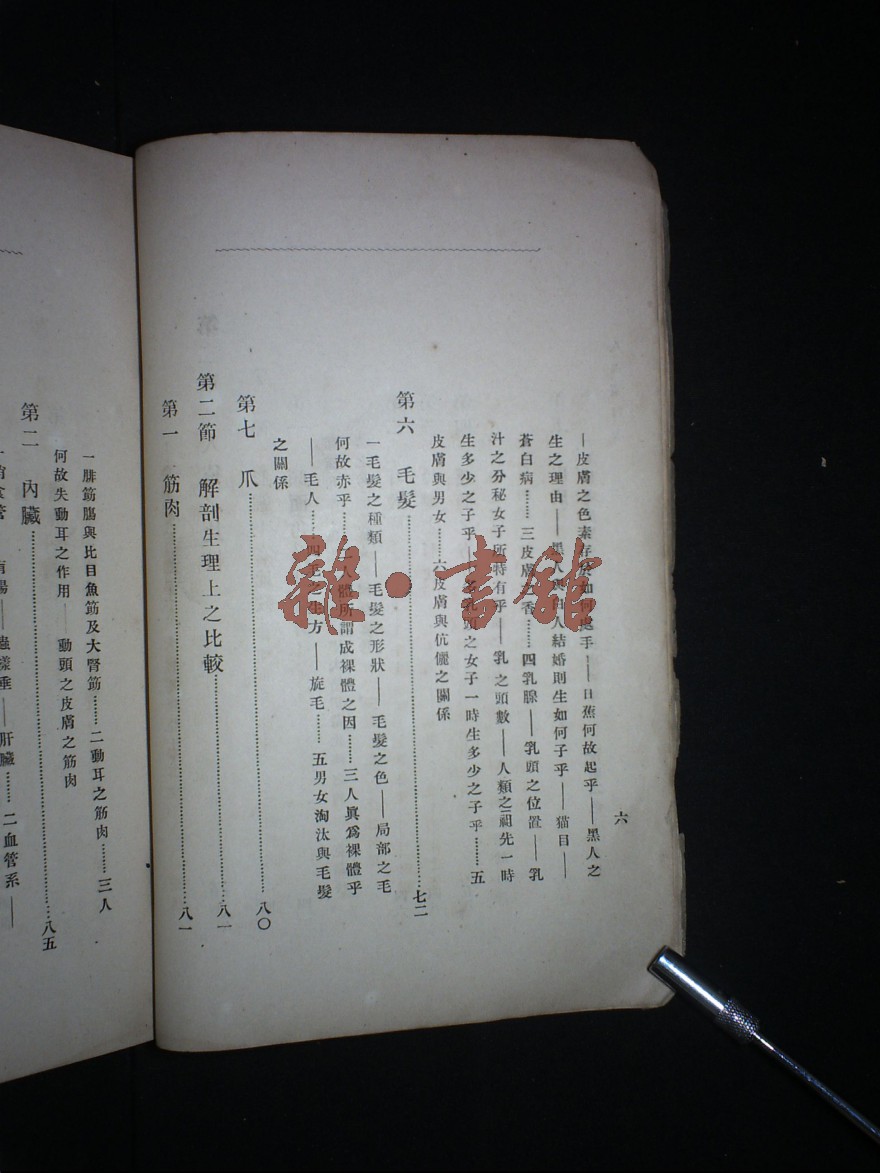 六
—皮膚之色素存於如何處乎——日蕉何故起乎——黑人之
生之理由——黑人與白人結婚則生如何子乎——猫目——
蒼白病……三皮膚之香……四乳腺——乳頭之位置——乳
汁之分秘女子所特有乎——乳之頭數——人類之祖先一時
生多少之子乎——多乳頭之女子一時生多少之子乎……五
皮膚與男女……六皮膚與伉儷之關係
第六 毛髮……七二
一毛髮之種類——毛髮之形狀——毛髮之色——局部之毛
何故赤乎……二人體所謂成裸體之因……三人眞爲裸體乎
——毛人……四毛之生方——旋毛……五男女淘汰與毛髮
之關係
第七 爪……八〇
第二節 解剖生理上之比較……八一
第一 筋肉……八一
一腓筋膓與比目魚筋及大腎筋……二動耳之筋肉……三人
何故失動耳之作用——動頭之皮膚之筋肉
第二 內臟……八五
蟲樣垂——肝臟……二血管系——
雜·書館